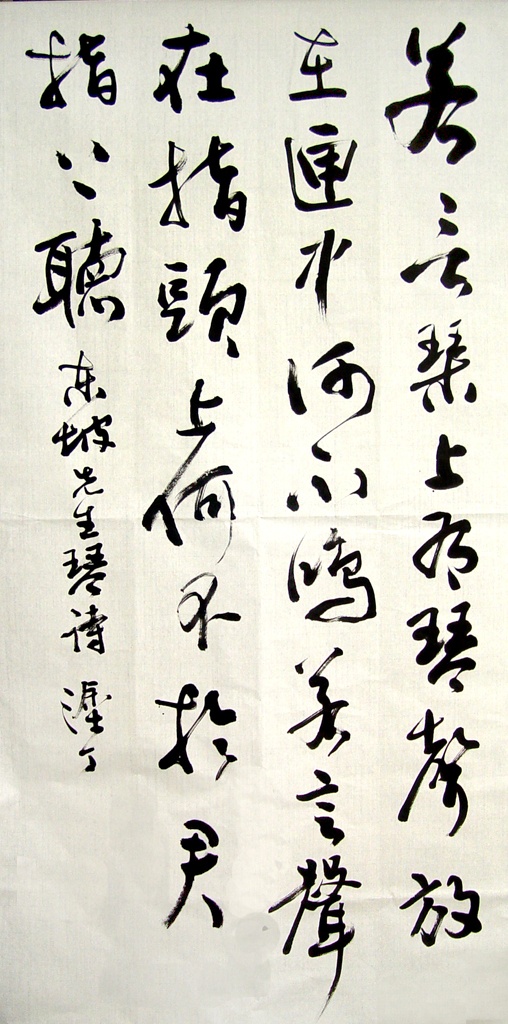 若言琴上有琴声放
在匣中何不鳴若言聲
在指頭上何不於君
指上聽
东坡先生琴诗